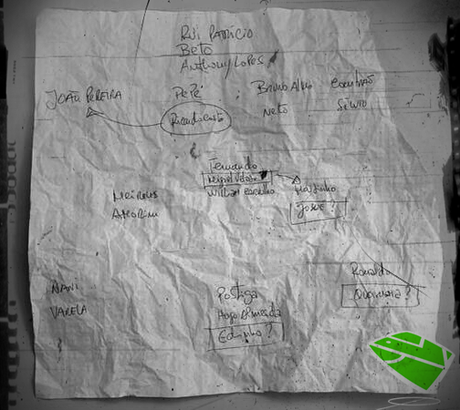 Rui Patrício
Beto
Anthony Lopes
João Pereira
Pepe
Bruno Alves
Coentrão
Ricardo Costa
Neto
Sílvio
Fernando
Miguel Veloso
William Carvalho
Moutinho
Josué?
Meireles
Amorim
Nani
Varela
Postiga
Hugo Almeida
Edinho?
Ronaldo
Quaresma?